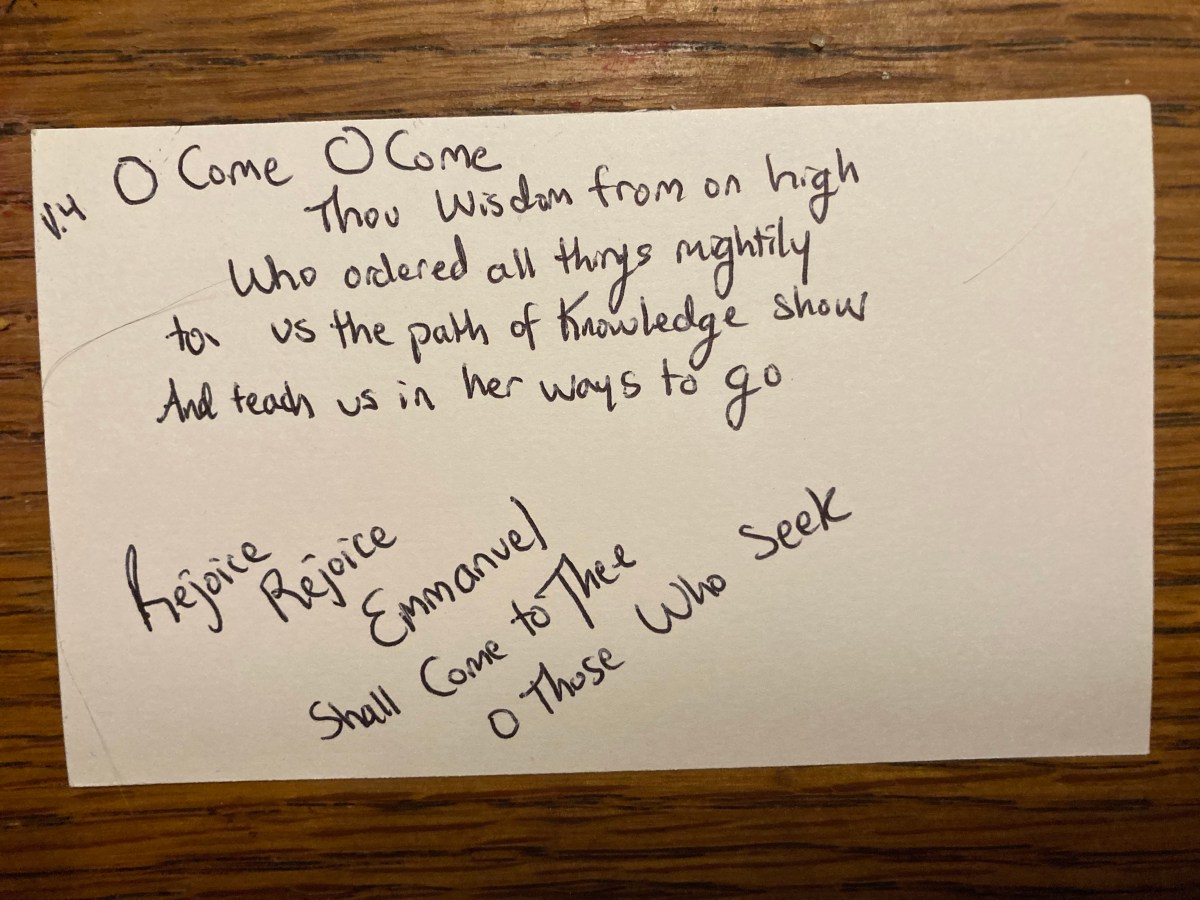 O Come O Come
v.4
Thou Wisdom from on high
Who ordered all things mightily
to us the path of Knowledge show
And teach us in her ways to go
Rejoice
Rejoice
Emmanuel
Shall Come to Thee
O Those Who Seek